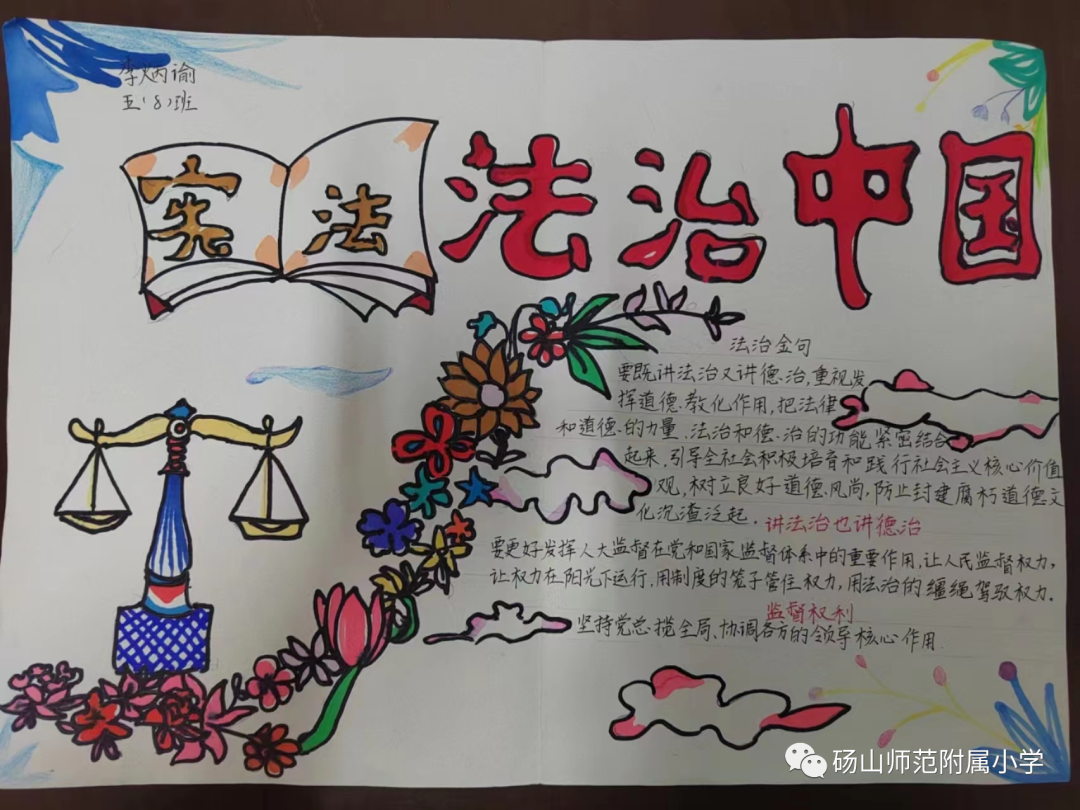 李炳谕
五(8)班
宪法
法治中国
法治金句
要既讲法治又讲德治,重视发
挥道德教化作用,把法律
和道德的力量、法治和德治的功能紧密结合
起来,引导全社会积极培育和践行社会主义核心价值
观,树立良好道德风尚,防止封建腐朽道德文
化沉渣泛起.
讲法治也讲德治
要更好发挥人大监督在党和国家监督体系中的重要作用,让人民监督权力,
让权力在阳光下运行,用制度的笼子管住权力,用法治的缰绳驾驭权力.
监督权利
坚持党总揽全局、协调各方的领导核心作用.
砀山师范附属小学